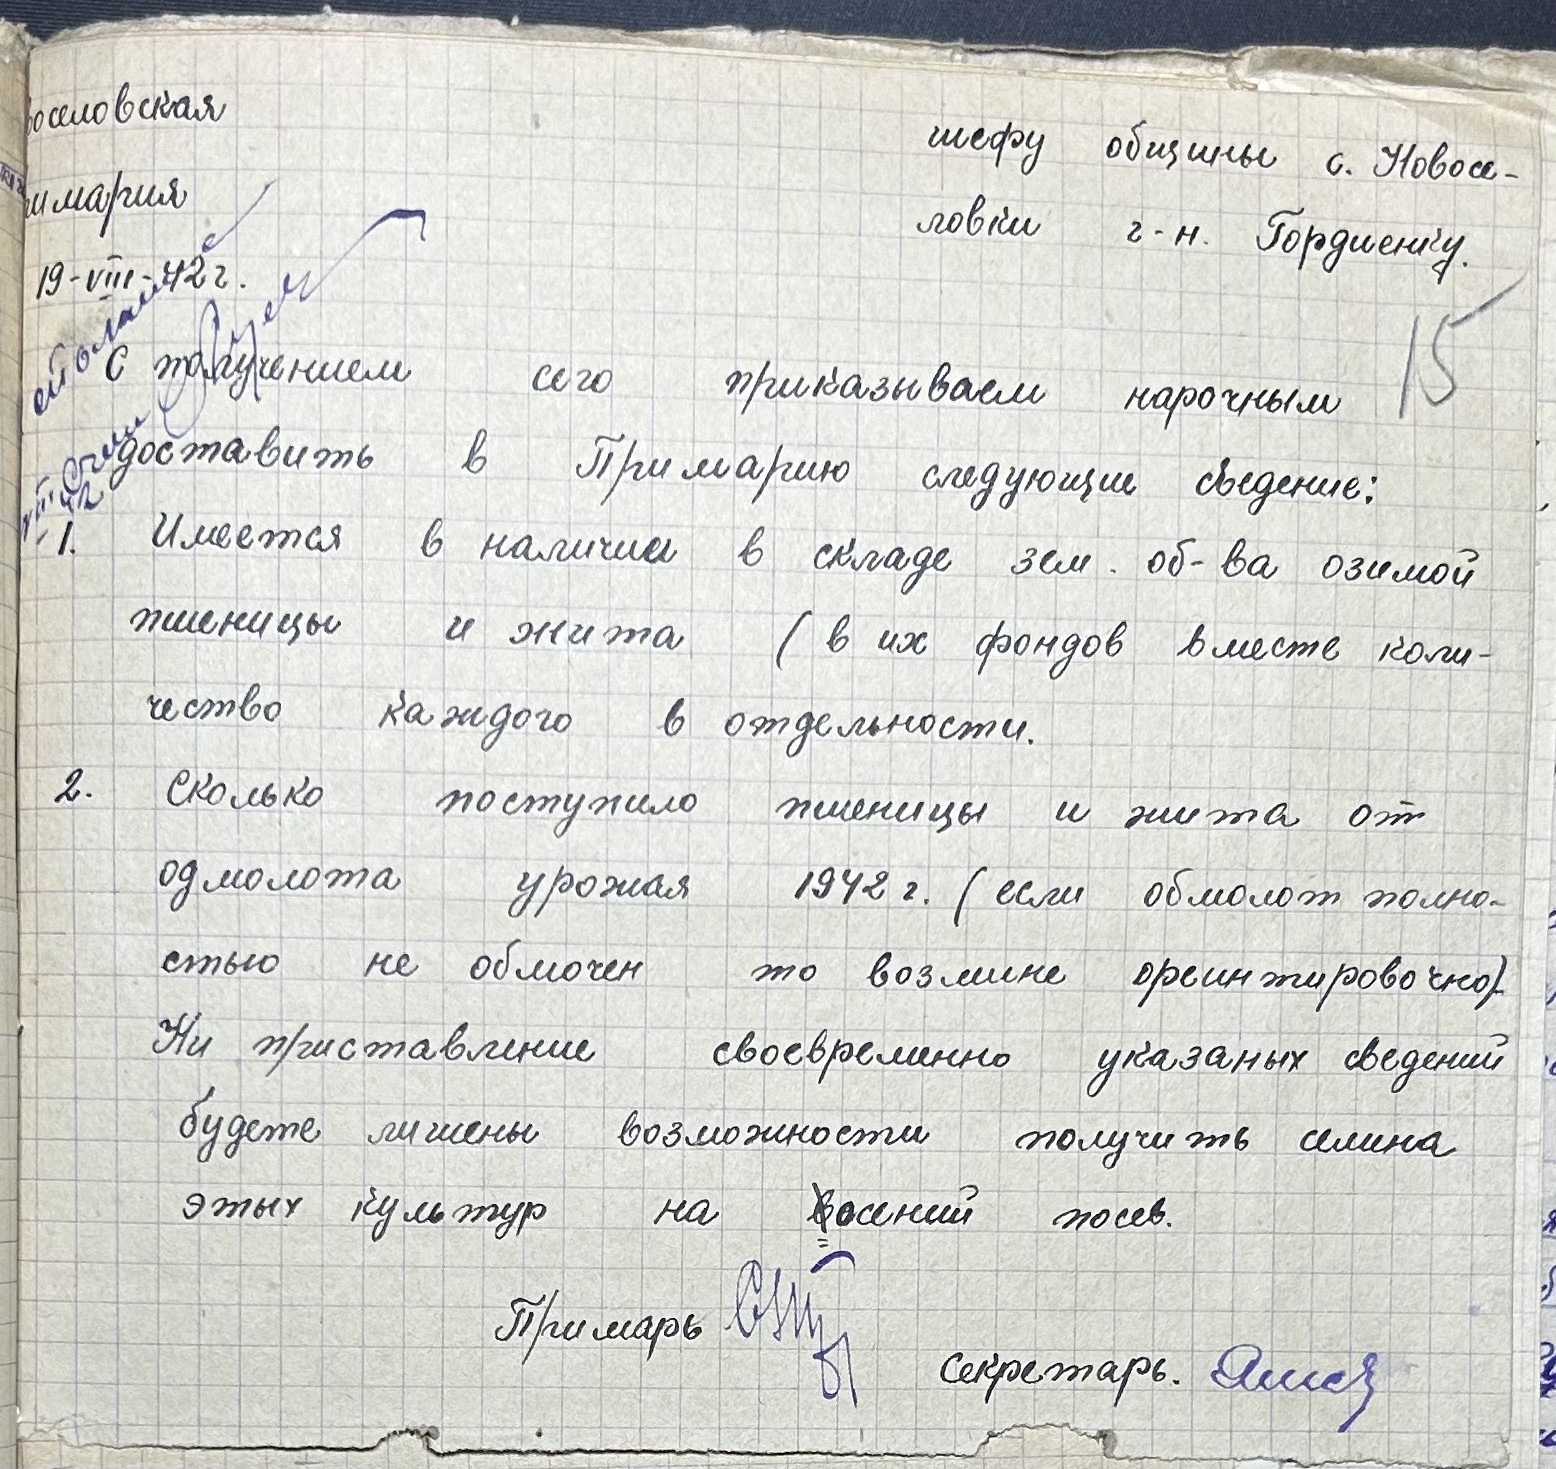 оселовская
шефу общины с. Новосе-
имария
ловки г-н. Гордиенку.
19-VIII-42 г.
15
С получением сего приказываем нарочным
доставить в Примарию следующие сведение:
1. Имеется в наличии в складе зем. об-ва озимой
пшеницы и жита ( в их фондов вместе коли-
чество каждого в отдельности.
2. Сколько поступило пшеницы и жита от
одмолота урожая 1942 г. ( если обмолот полно-
стью не обмочен то возмине ореинтировочно).
Ни приставление своевременно указаных сведений
будете лишены возможности получить семина
этых культур на восений посев.
Примарь
Секретарь.